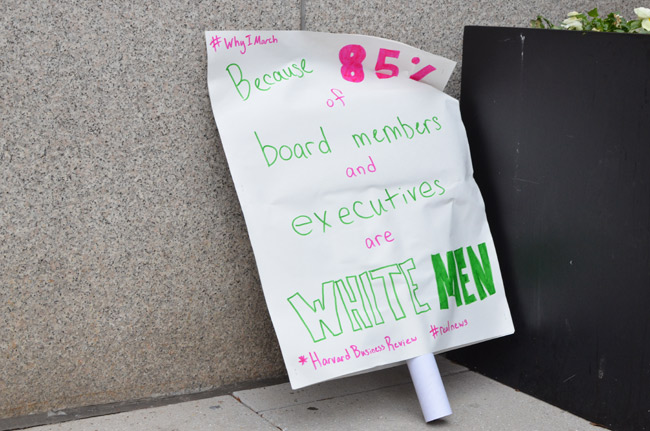 #WhyIMarch
Because 85%
of
board members
and
executives
are
WHITE MEN
*Harvard Business Review #realnews